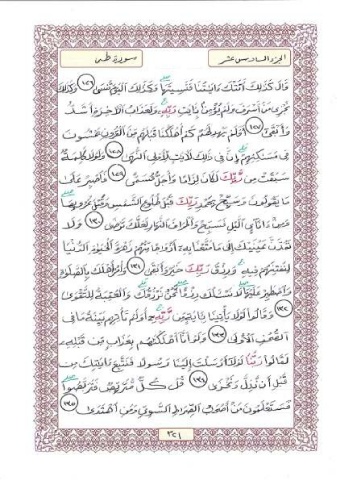 الجزء السادس عشر
سورة طه
قَالَ كَذَٰلِكَ أَتَتْكَ ءَايَٰتُنَا فَنَسِيتَهَا وَكَذَٰلِكَ ٱلْيَوْمَ تُنسَىٰ ١٢٦ وَكَذَٰلِكَ
نَجْزِى مَنْ أَسْرَفَ وَلَمْ يُؤْمِنۢ بِـَٔايَٰتِ رَبِّهِۦ وَلَعَذَابُ ٱلْءَاخِرَةِ أَشَدُّ
وَأَبْقَىٰٓ ١٢٧ أَفَلَمْ يَهْدِ لَهُمْ كَمْ أَهْلَكْنَا قَبْلَهُم مِّنَ ٱلْقُرُونِ يَمْشُونَ
فِى مَسَٰكِنِهِمْ إِنَّ فِى ذَٰلِكَ لَءَايَٰتٍ لِّأُو۟لِى ٱلنُّهَىٰ ١٢٨ وَلَوْلَا كَلِمَةٌ
سَبَقَتْ مِن رَّبِّكَ لَكَانَ لِزَامًا وَأَجَلٌ مُّسَمًّى ١٢٩ فَٱصْبِرْ عَلَىٰ
مَا يَقُولُونَ وَسَبِّحْ بِحَمْدِ رَبِّكَ قَبْلَ طُلُوعِ ٱلشَّمْسِ وَقَبْلَ غُرُوبِهَا
وَمِنْ ءَانَآئِ ٱلَّيْلِ فَسَبِّحْ وَأَطْرَافَ ٱلنَّهَارِ لَعَلَّكَ تَرْضَىٰ ١٣٠ وَلَا
تَمُدَّنَّ عَيْنَيْكَ إِلَىٰ مَا مَتَّعْنَا بِهِۦٓ أَزْوَٰجًا مِّنْهُمْ زَهْرَةَ ٱلْحَيَوٰةِ ٱلدُّنْيَا
لِنَفْتِنَهُمْ فِيهِ وَرِزْقُ رَبِّكَ خَيْرٌ وَأَبْقَىٰ ١٣١ وَأْمُرْ أَهْلَكَ بِٱلصَّلَوٰةِ
وَٱصْطَبِرْ عَلَيْهَا لَا نَسْـَٔلُكَ رِزْقًا نَّحْنُ نَرْزُقُكَ وَٱلْعَٰقِبَةُ لِلتَّقْوَىٰ
١٣٢ وَقَالُوا۟ لَوْلَا يَأْتِينَا بِـَٔايَةٍ مِّن رَّبِّهِۦٓ أَوَلَمْ تَأْتِهِم بَيِّنَةُ مَا فِى
ٱلصُّحُفِ ٱلْأُولَىٰ ١٣٣ وَلَوْ أَنَّآ أَهْلَكْنَٰهُم بِعَذَابٍ مِّن قَبْلِهِۦ
لَقَالُوا۟ رَبَّنَا لَوْلَآ أَرْسَلْتَ إِلَيْنَا رَسُولًا فَنَتَّبِعَ ءَايَٰتِكَ مِن
قَبْلِ أَن نَّذِلَّ وَنَخْزَىٰ ١٣٤ قُلْ كُلٌّ مُّتَرَبِّصٌ فَتَرَبَّصُوا۟
فَسَتَعْلَمُونَ مَنْ أَصْحَٰبُ ٱلصِّرَٰطِ ٱلسَّوِىِّ وَمَنِ ٱهْتَدَىٰ ١٣٥
٣٢١